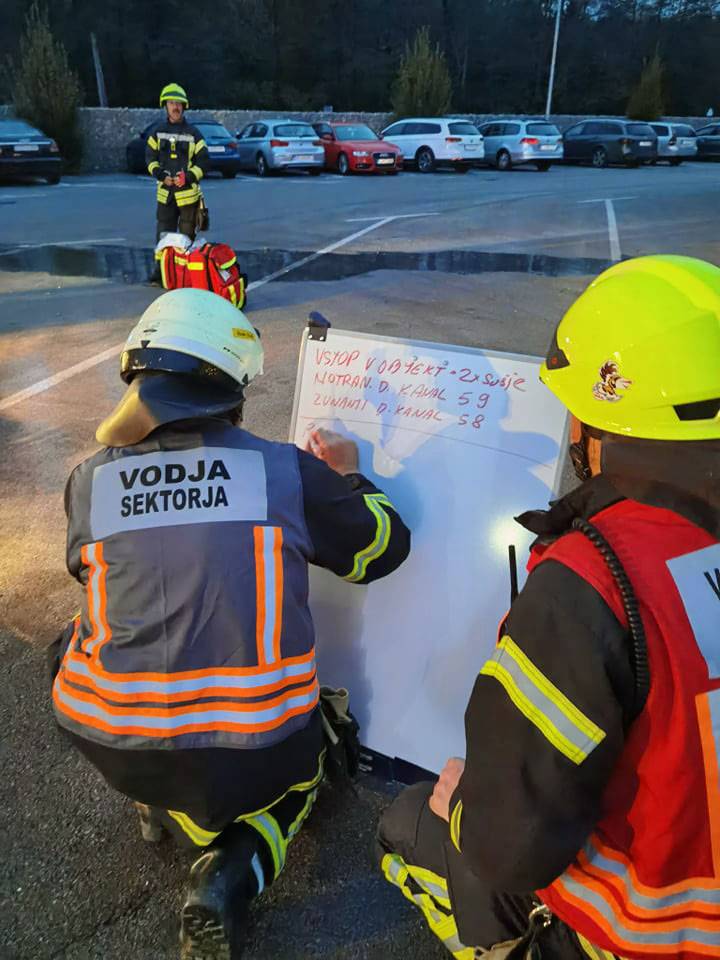 VSTOP V OBJEKT - 2x SUŠJE
NOTRAN. D. KANAL 59
ZUNANJI D. KANAL 58
VODJA
SEKTORJA
V